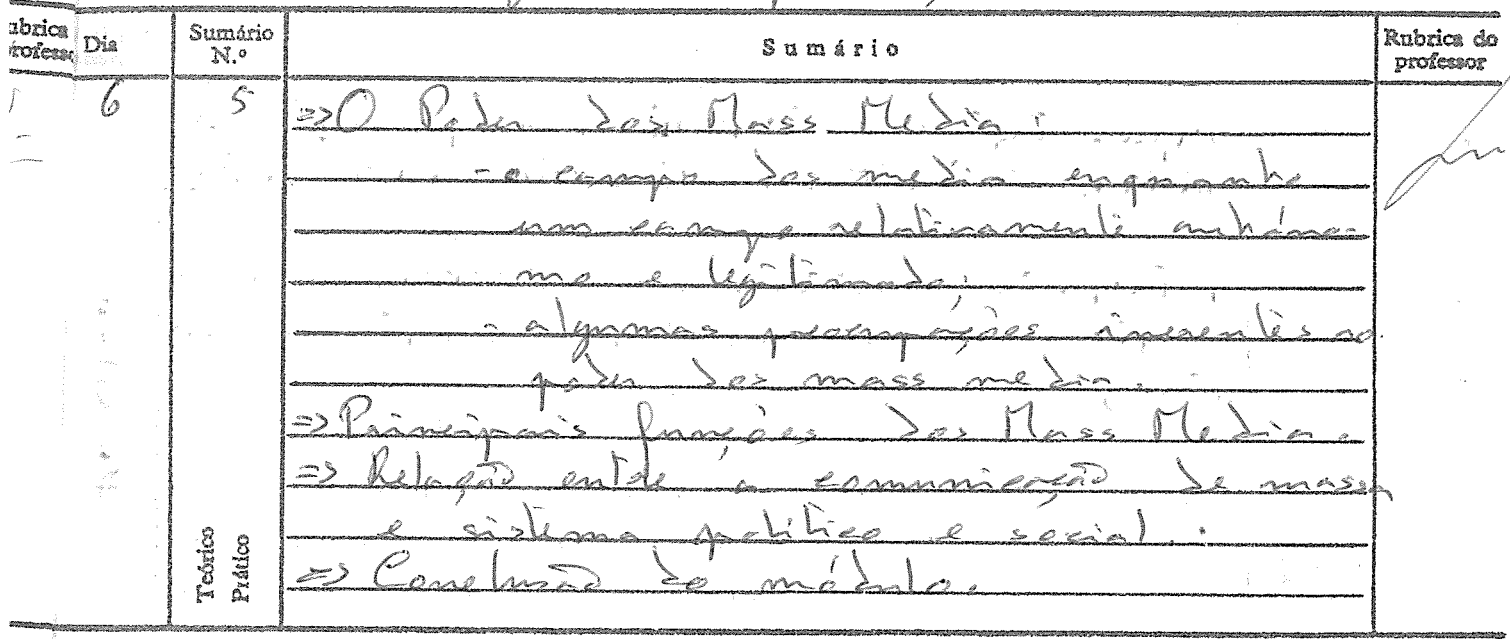 ubrica
professo
Dia
Sumário
N.º
Sumário
Rubrica do
professor
6
5
=> O Poder dos Mass Media:
- o campo dos media enquanto
um campo relativamente autóno-
mo e legitimado;
- algumas preocupações inerentes ao
poder dos mass media.
=> Principais funções dos Mass Media.
=> Relação entre a comunicação de massa
e sistema político e social.
=> Conclusão do módulo.
Teórico
Prático